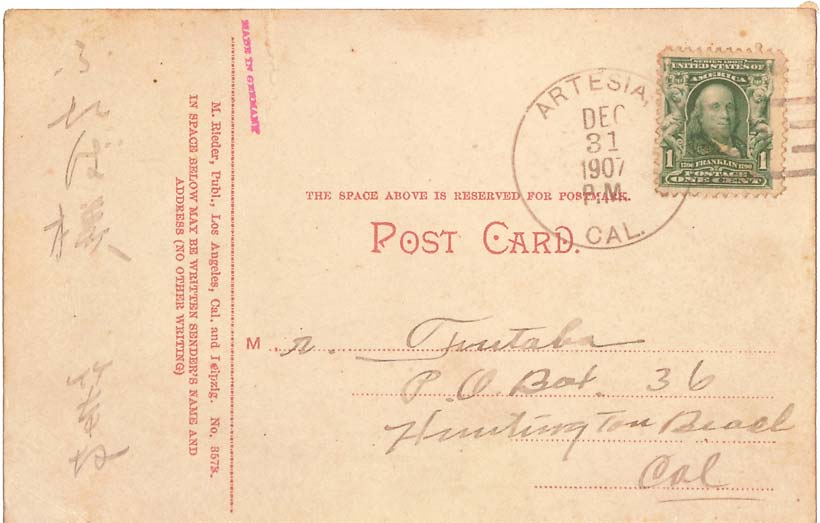 MADE IN GERMANY
M. Rieder, Publ., Los Angeles, Cal. and Leipzig. No. 3573.
IN SPACE BELOW MAY BE WRITTEN SENDER'S NAME AND
ADDRESS (NO OTHER WRITING)
様
ARTESIA,
DEC
31
1907
P.M.
CAL.
SERIES 1902
UNITED STATES OF
AMERICA
1 FRANKLIN 1
POSTAGE
ONE CENT
THE SPACE ABOVE IS RESERVED FOR POSTMARK.
POST CARD.
Mr. Tsutaba
P.O. Box. 36
Huntington Beach
Cal